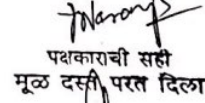 पक्षकाराची सही
मूळ दस्त परत दिला